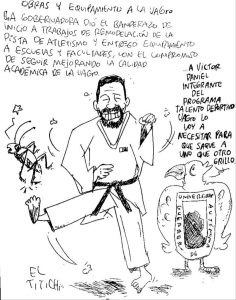 OBRAS Y EQUIPAMIENTO A LA UAGro
LA GOBERNADORA DIÓ EL BANDERAZO DE
INICIO A TRABAJOS DE REMODELACIÓN DE LA
PISTA DE ATLETISMO Y ENTREGÓ EQUIPAMIENTO
A ESCUELAS Y FACULTADES, CON EL COMPROMISO
DE SEGUIR MEJORANDO LA CALIDAD
ACADÉMICA DE LA UAGro
...A VICTOR
DANIEL
INTEGRANTE DEL
PROGRAMA
TALENTO DEPORTIVO
UAGro LO
VOY A
NECESITAR PARA
QUE SAQUE A
UNO QUE OTRO
GRILLO.
UNIVERSIDAD
AUTÓNOMA
DE
GUERRERO
EL
TITICHI